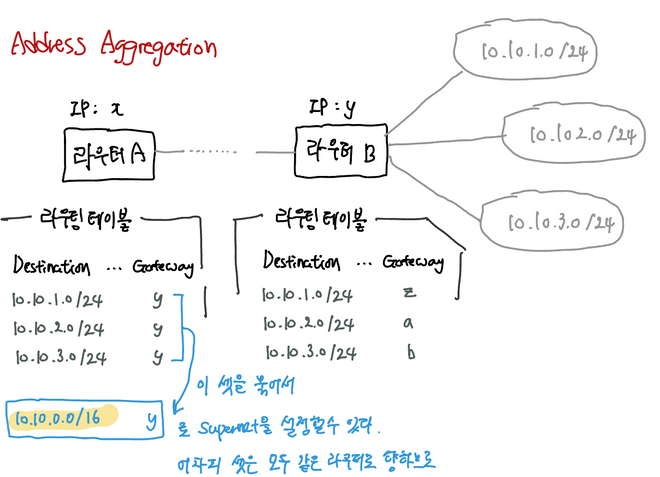 Address Aggregation
10.10.1.0/24
IP: x
IP: y
라우터 A
라우터 B
10.10 2.0/24
10.10.3.0/24
라우팅 테이블
Destination ... Gateway
10.10.1.0/24 y
10.10.2.0/24 y
10.10.3.0/24 y
라우팅 테이블
Destination ... Gateway
10.10.1.0/24 z
10.10.2.0/24 a
10.10.3.0/24 b
10.10.0.0/16 y
이 셋을 묶어서
로 Supernet을 설정할수 있다.
어차피 셋은 모두 같은 라우터로 향하므로